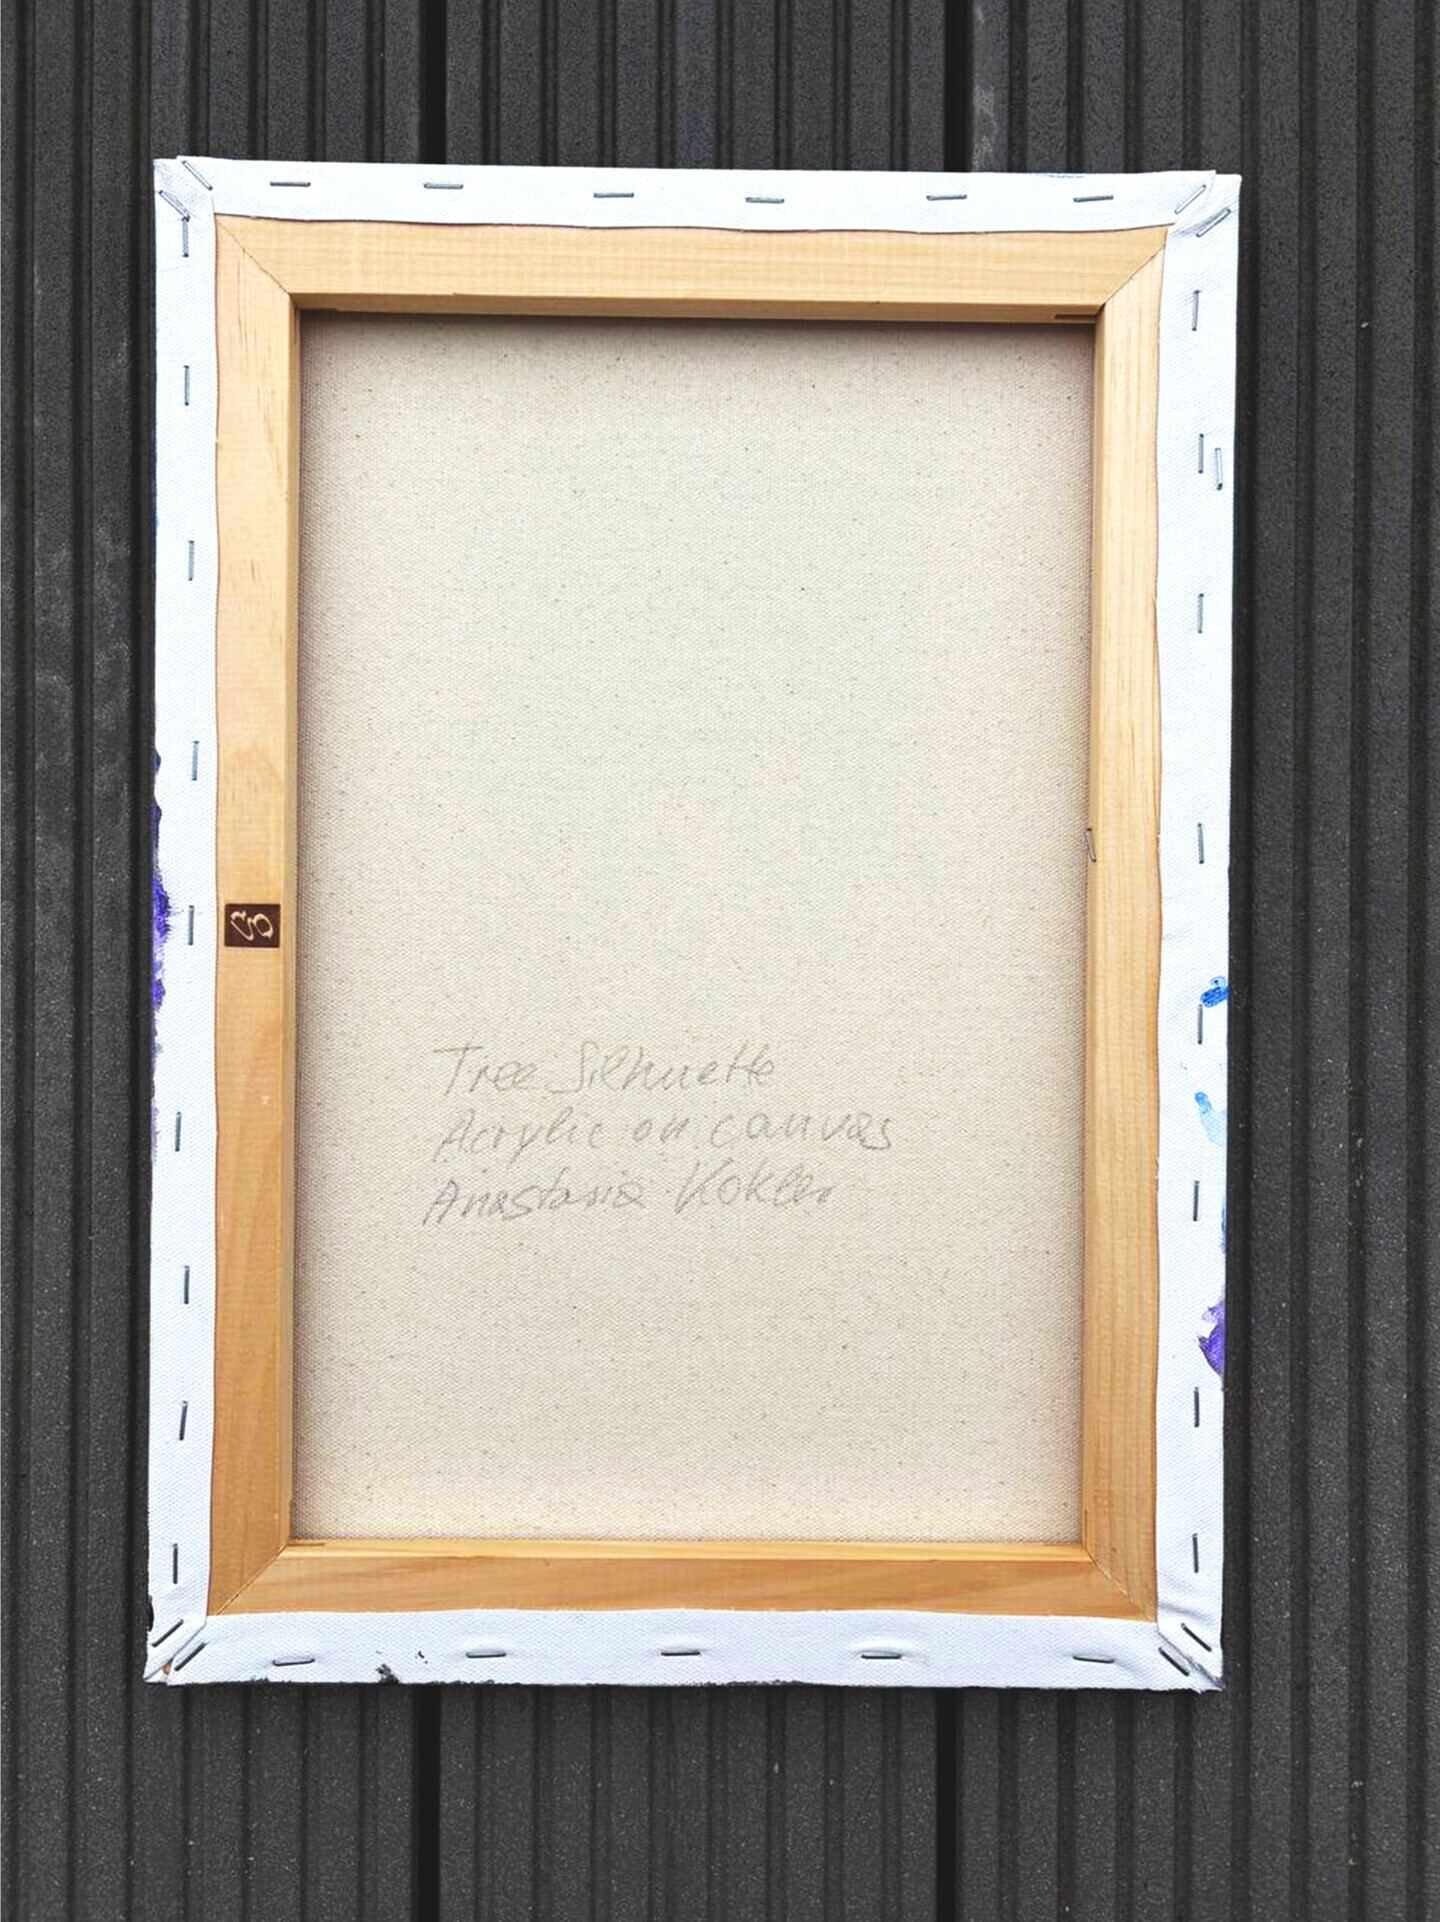 Tree Silhuette
Acrylic on canvas
Anastasia Kokler